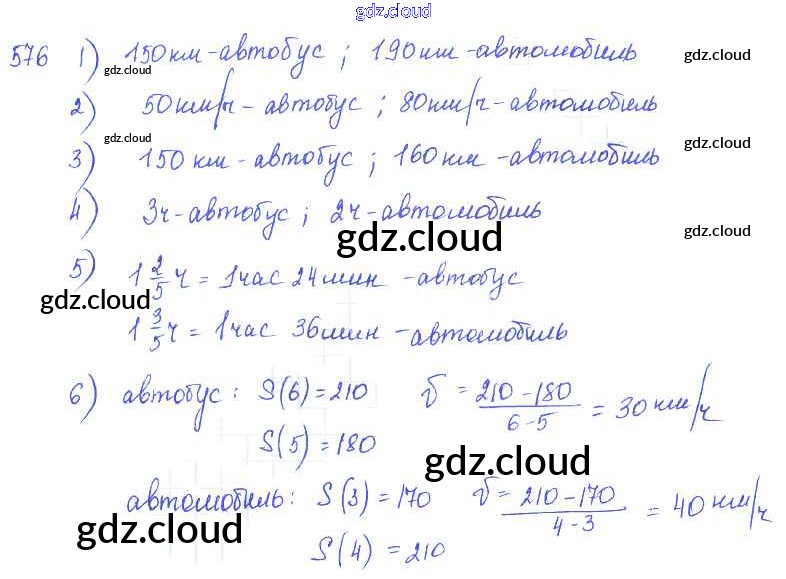 gdz.cloud
576 1) 150 км - автобус ; 190 км - автомобиль gdz.cloud
gdz.cloud
2) 50 км/ч - автобус ; 80 км/ч - автомобиль gdz.cloud
gdz.cloud
3) 150 км - автобус ; 160 км - автомобиль gdz.cloud
4) 3ч - автобус ; 2ч - автомобиль
gdz.cloud gdz.cloud
5) 1 2/5 ч = 1 час 24 мин - автобус
gdz.cloud
1 3/5 ч = 1 час 36 мин - автомобиль
6) автобус : S(6) = 210 v = (210 - 180)/(6 - 5) = 30 км/ч
S(5) = 180
gdz.cloud
автомобиль : S(3) = 170 v = (210 - 170)/(4 - 3) = 40 км/ч
gdz.cloud
S(4) = 210